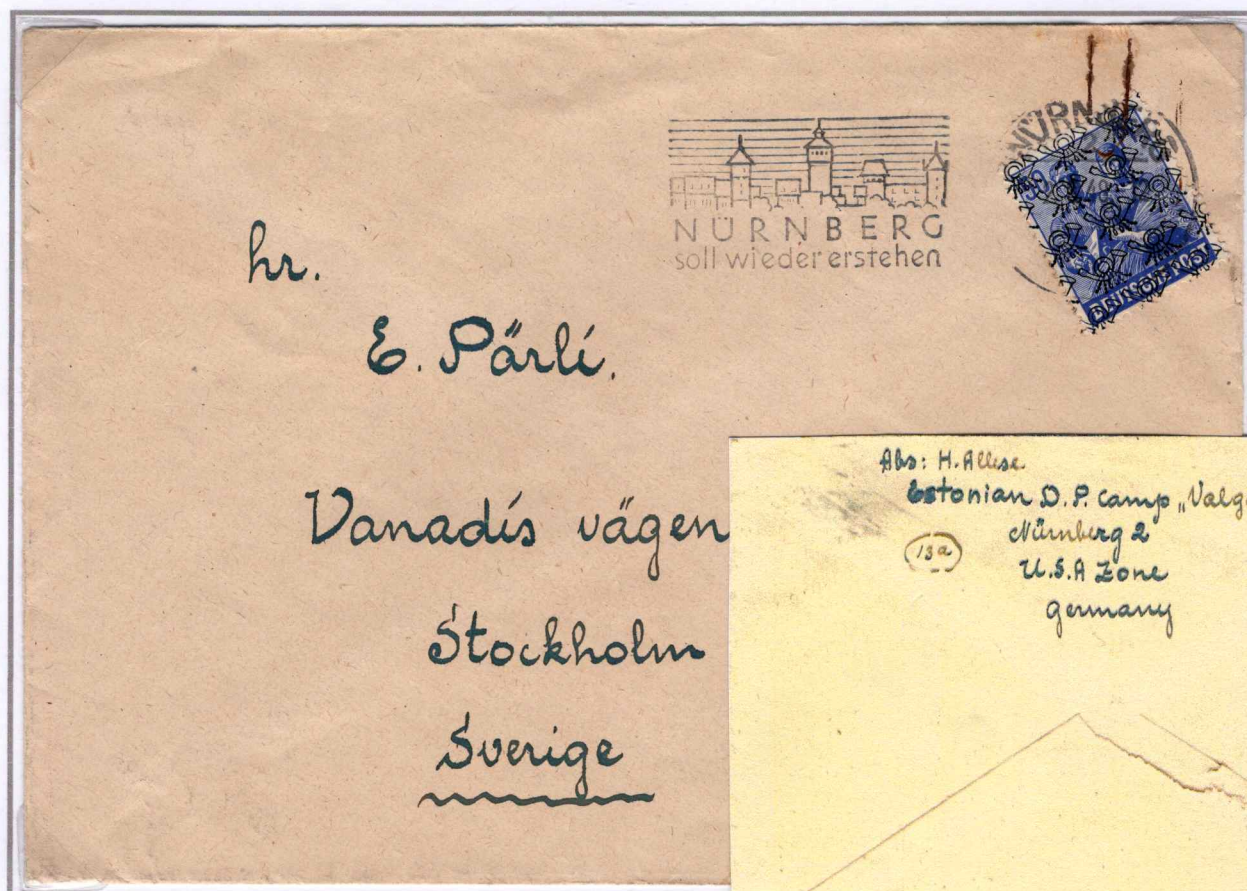 NÜRNBERG
soll wieder erstehen
NÜRNBERG
50
DEUTSCHE POST
hr.
E. Pärli.
Vanadis vägen
Stockholm
Sverige
Abs: H. Allese
Estonian D. P. camp „Valg
13a
Nürnberg 2
U.S.A Zone
Germany